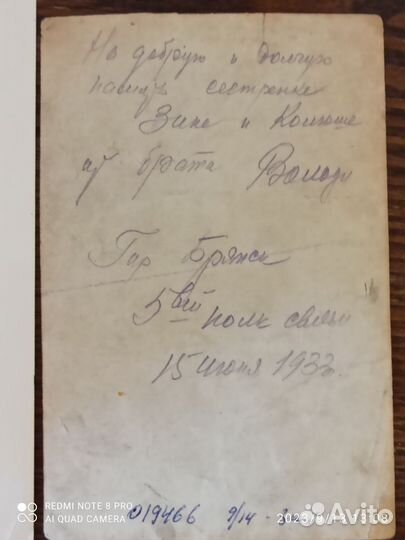 На добрую и долгую
память сестренке
Зине и Колюше
от брата Володи
Гор Брянск
5вый полк связи
15 июня 1933г.
019466 9/14 -
REDMI NOTE 8 PRO
AI QUAD CAMERA
2023/9/13 13:08
Avito